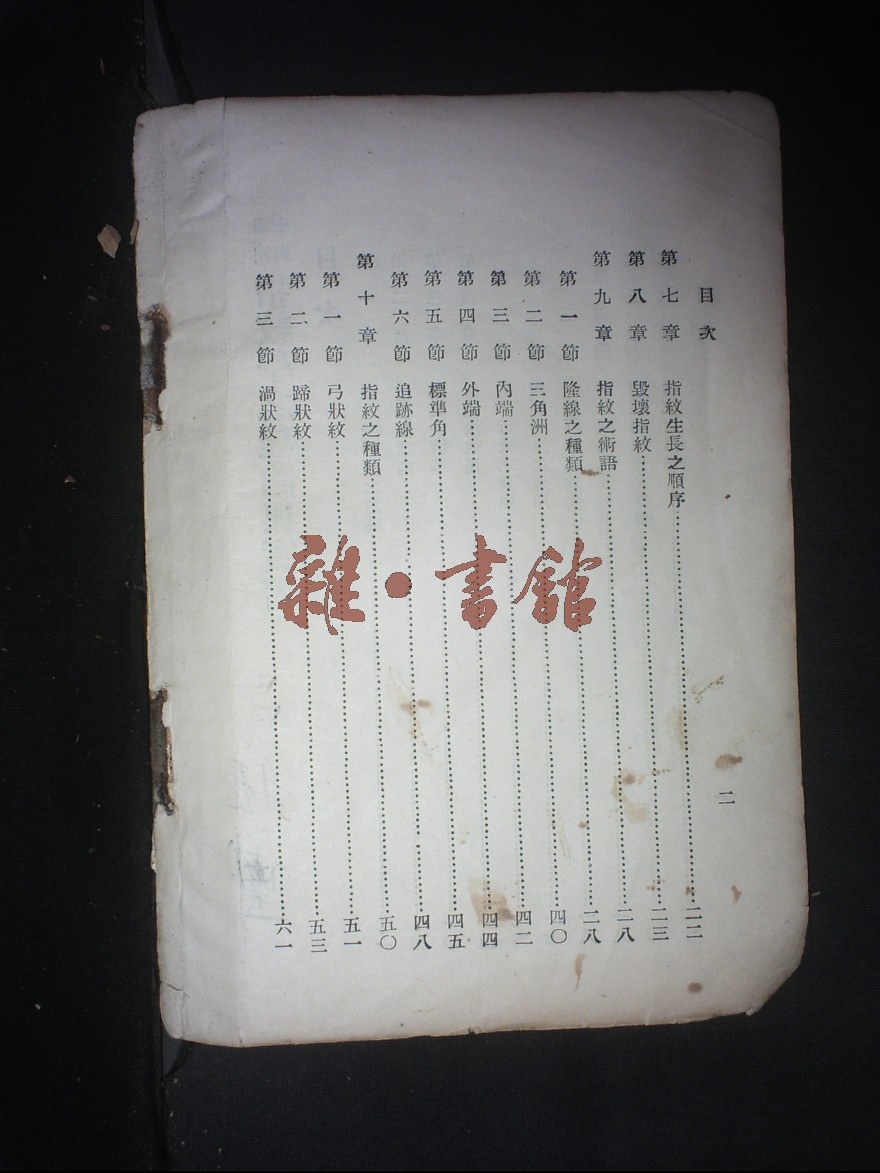 目次
二
第七章 指紋生長之順序……二二
第八章 毀壞指紋……二三
第九章 指紋之術語……二八
第一節 隆線之種類……二八
第二節 三角洲……四〇
第三節 內端……四二
第四節 外端……四四
第五節 標準角……四五
第六節 追跡線……四八
第十章 指紋之種類……五〇
第一節 弓狀紋……五一
第二節 蹄狀紋……五三
第三節 渦狀紋……六一
雜·書館